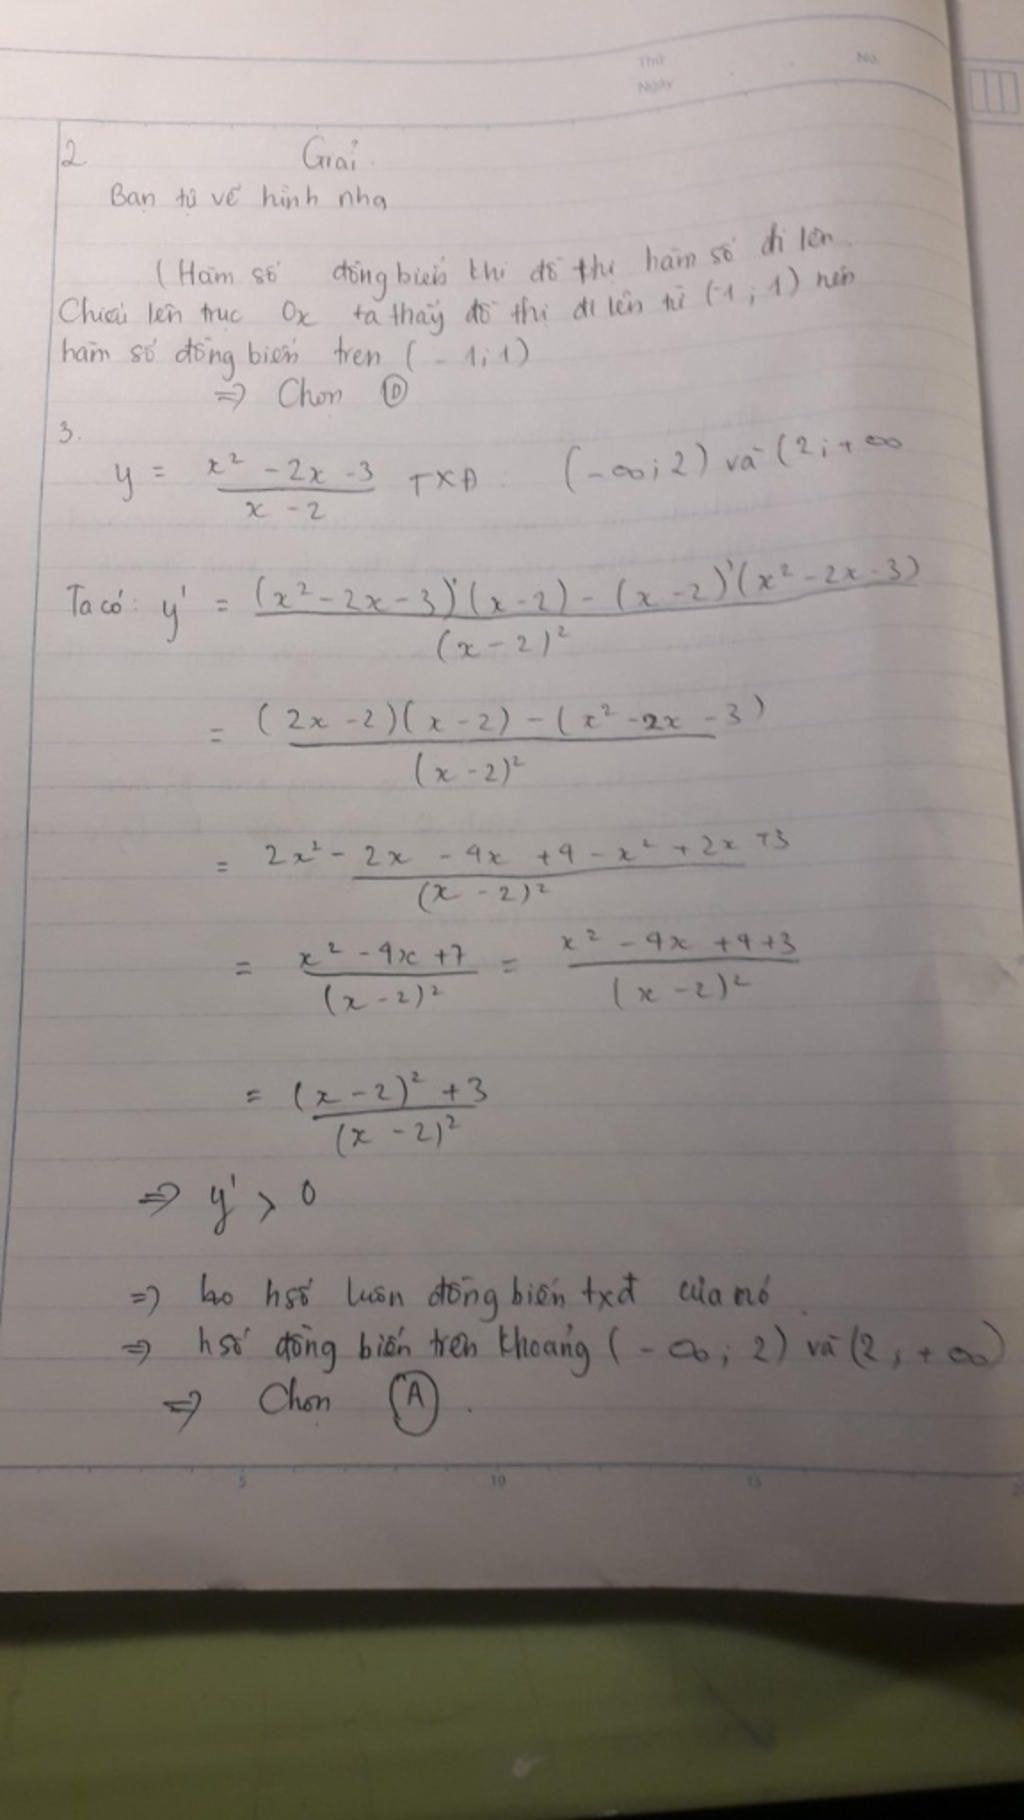 Thứ
No.
Ngày
2 Giải.
Bạn tự vẽ hình nha
(Hàm số đồng biến khi đồ thị hàm số đi lên.
Chiếu lên trục Ox ta thấy đồ thị đi lên từ (-1; 1) nên
hàm số đồng biến trên (-1; 1)
=> Chọn Ⓓ
3.
y = (x² - 2x - 3)/(x - 2) TXĐ: (-∞; 2) và (2; +∞
Ta có: y' = ((x² - 2x - 3)'(x - 2) - (x - 2)'(x² - 2x - 3))/(x - 2)²
= ((2x - 2)(x - 2) - (x² - 2x - 3))/(x - 2)²
= (2x² - 2x - 4x + 4 - x² + 2x + 3)/(x - 2)²
= (x² - 4x + 7)/(x - 2)² = (x² - 4x + 4 + 3)/(x - 2)²
= ((x - 2)² + 3)/(x - 2)²
=> y' > 0
=> hso hsố luôn đồng biến txđ của nó.
=> hsố đồng biến trên khoảng (-∞; 2) và (2; +∞)
=> Chọn Ⓐ.
5 10 15